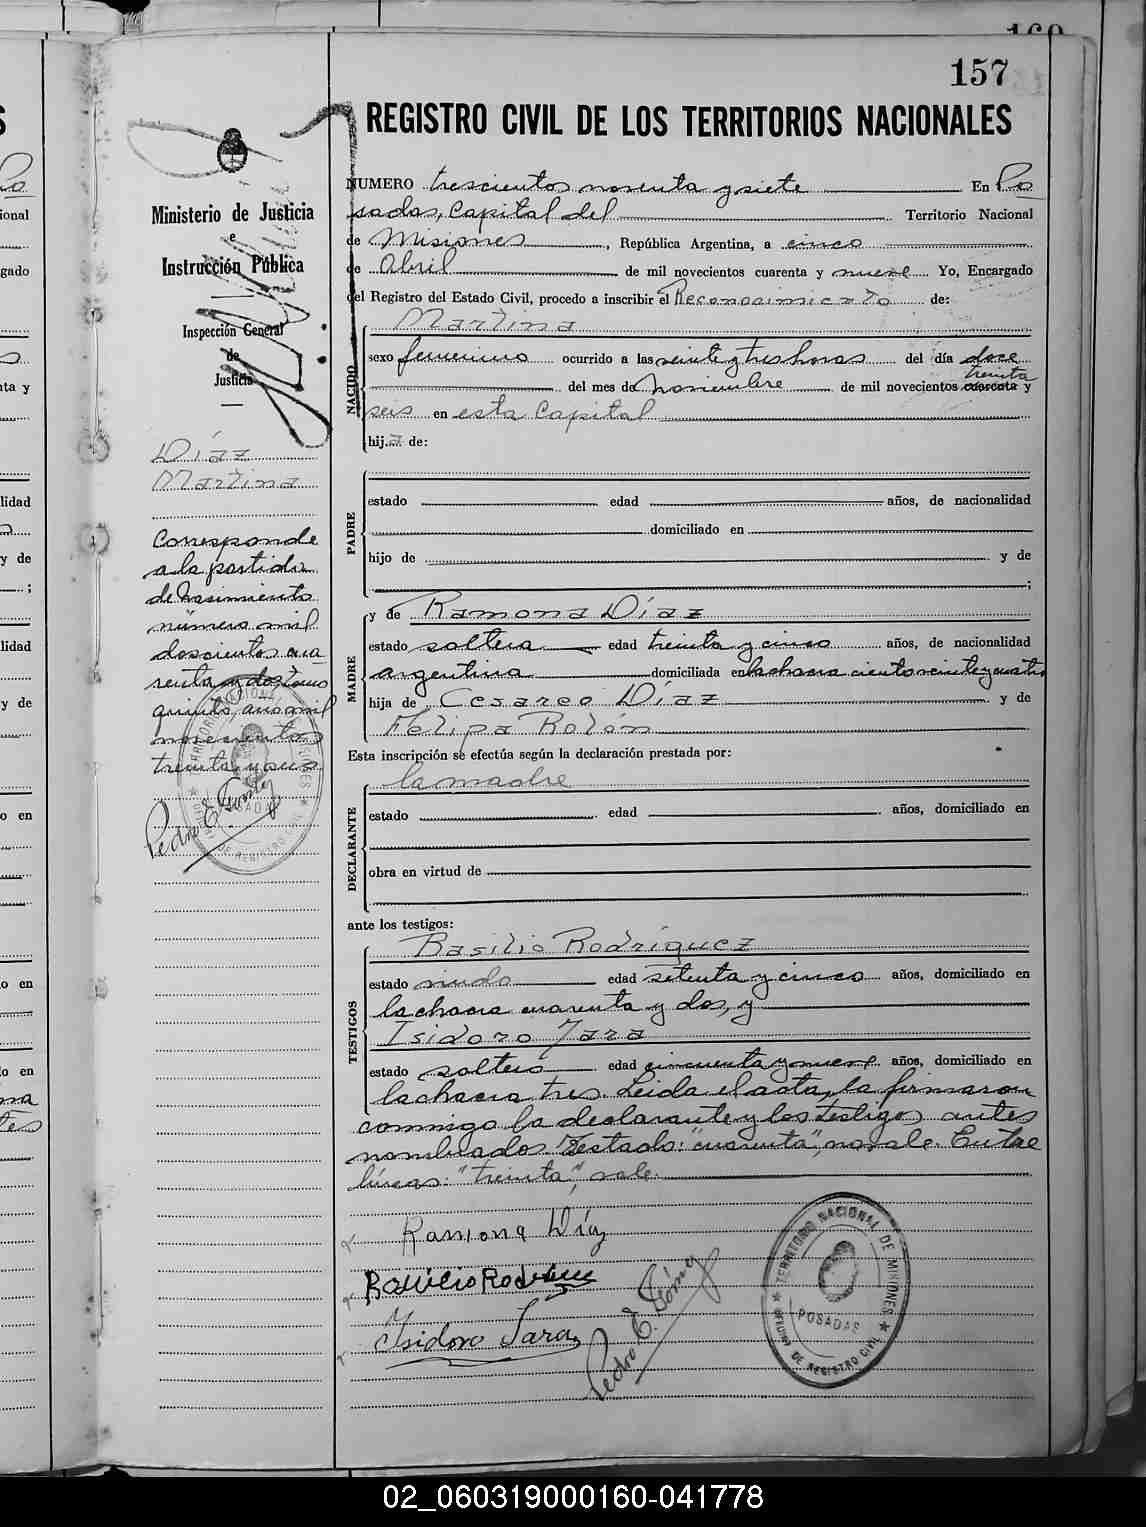 157
REGISTRO CIVIL DE LOS TERRITORIOS NACIONALES
NUMERO trescientos noventa y siete En Po
sadas, Capital del Territorio Nacional
de Misiones, República Argentina, a cinco
de Abril de mil novecientos cuarenta y nueve Yo, Encargado
del Registro del Estado Civil, procedo a inscribir el Reconocimiento de:
NACIDO
Martina
sexo femenino ocurrido a las veinte y tres horas del día doce
treinta
del mes de Noviembre de mil novecientos cuarenta y
seis en esta Capital
hija de:
PADRE
estado edad años, de nacionalidad
domiciliado en
hijo de y de
;
MADRE
y de Ramona Díaz
estado soltera edad treinta y cinco años, de nacionalidad
argentina domiciliada en la chacra ciento veinte y cuatro
hija de Cesareo Díaz y de
Felipa Rolón
Esta inscripción se efectúa según la declaración prestada por:
DECLARANTE
la madre
estado edad años, domiciliado en
obra en virtud de
ante los testigos:
TESTIGOS
Basilio Rodríguez
estado viudo edad setenta y cinco años, domiciliado en
la chacra cuarenta y dos, y
Isidoro Jara
estado soltero edad cincuenta y nueve años, domiciliado en
la chacra tres. Leida el acta, la firmaron
conmigo la declarante y los testigos antes
nombrados. Testado: "cuarenta", no vale. Entre
líneas: "treinta", vale.
Ramona Díaz
Basilio Rodriguez
Isidoro Jara
Pedro E. Gómez
TERRITORIO NACIONAL DE MISIONES
POSADAS
OFICINA DE REGISTRO CIVIL
Ministerio de Justicia
e
Instrucción Pública
Inspección General
de
Justicia
Díaz
Martina
Corresponde
a la partida
de nacimiento
número mil
doscientos cua
renta y dos, tomo
quinto, año mil
novecientos
treinta y seis
Pedro E. Gómez
TERRITORIO NACIONAL DE MISIONES
POSADAS
OFICINA DE REGISTRO CIVIL
02_060319000160-041778